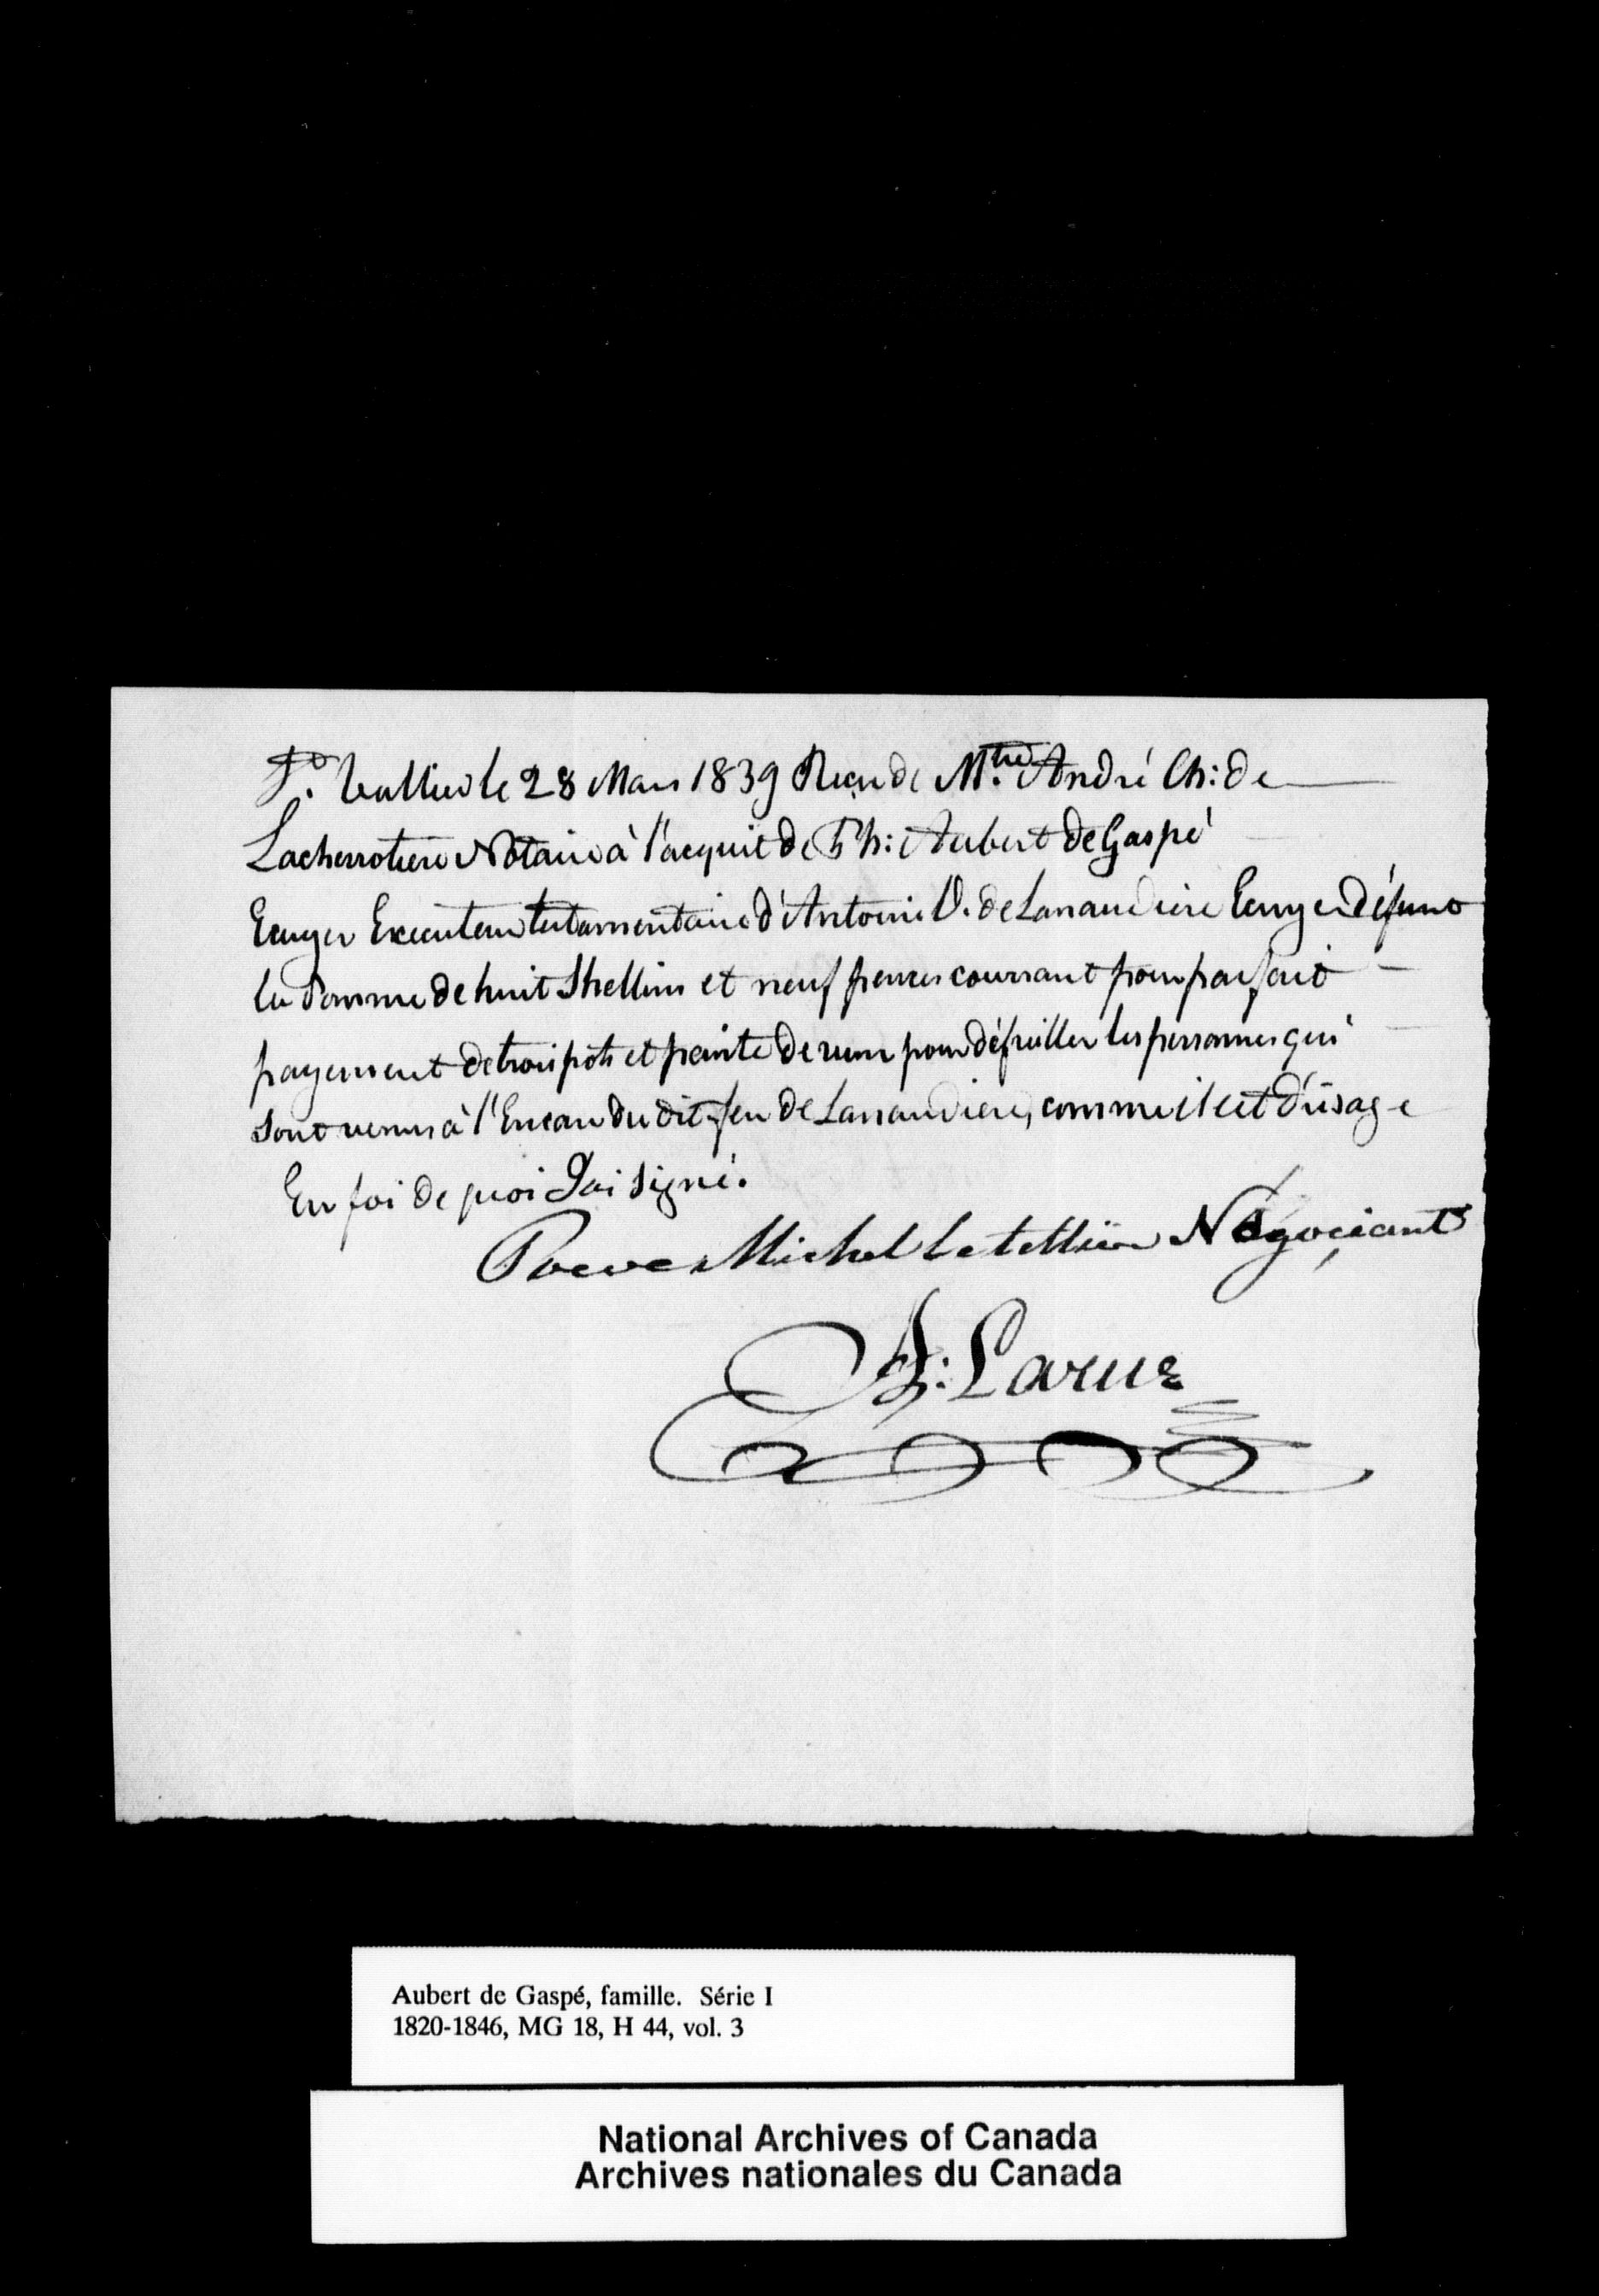 St. Vallier le 28 Mars 1839 Reçu de Mtre. André Ch: de
Lacherrotiere Notaire à l'acquit de Ph: Aubert de Gaspé
Ecuyer Executeur testamentaire d'Antoine O. de Lanaudiere Ecuyer défunt
la Somme de huit Shellins et neuf pences courrant pour parfait
payement de trois pots et peinte de rum pour défrailler les personnes qui
sont venus à l'Encan du dit feu de Lanaudiere, comme il est d'usage
En foi de quoi J'ai signé.
Michel Letellier Négociant
A: Larue
Aubert de Gaspé, famille. Série I
1820-1846, MG 18, H 44, vol. 3
National Archives of Canada
Archives nationales du Canada